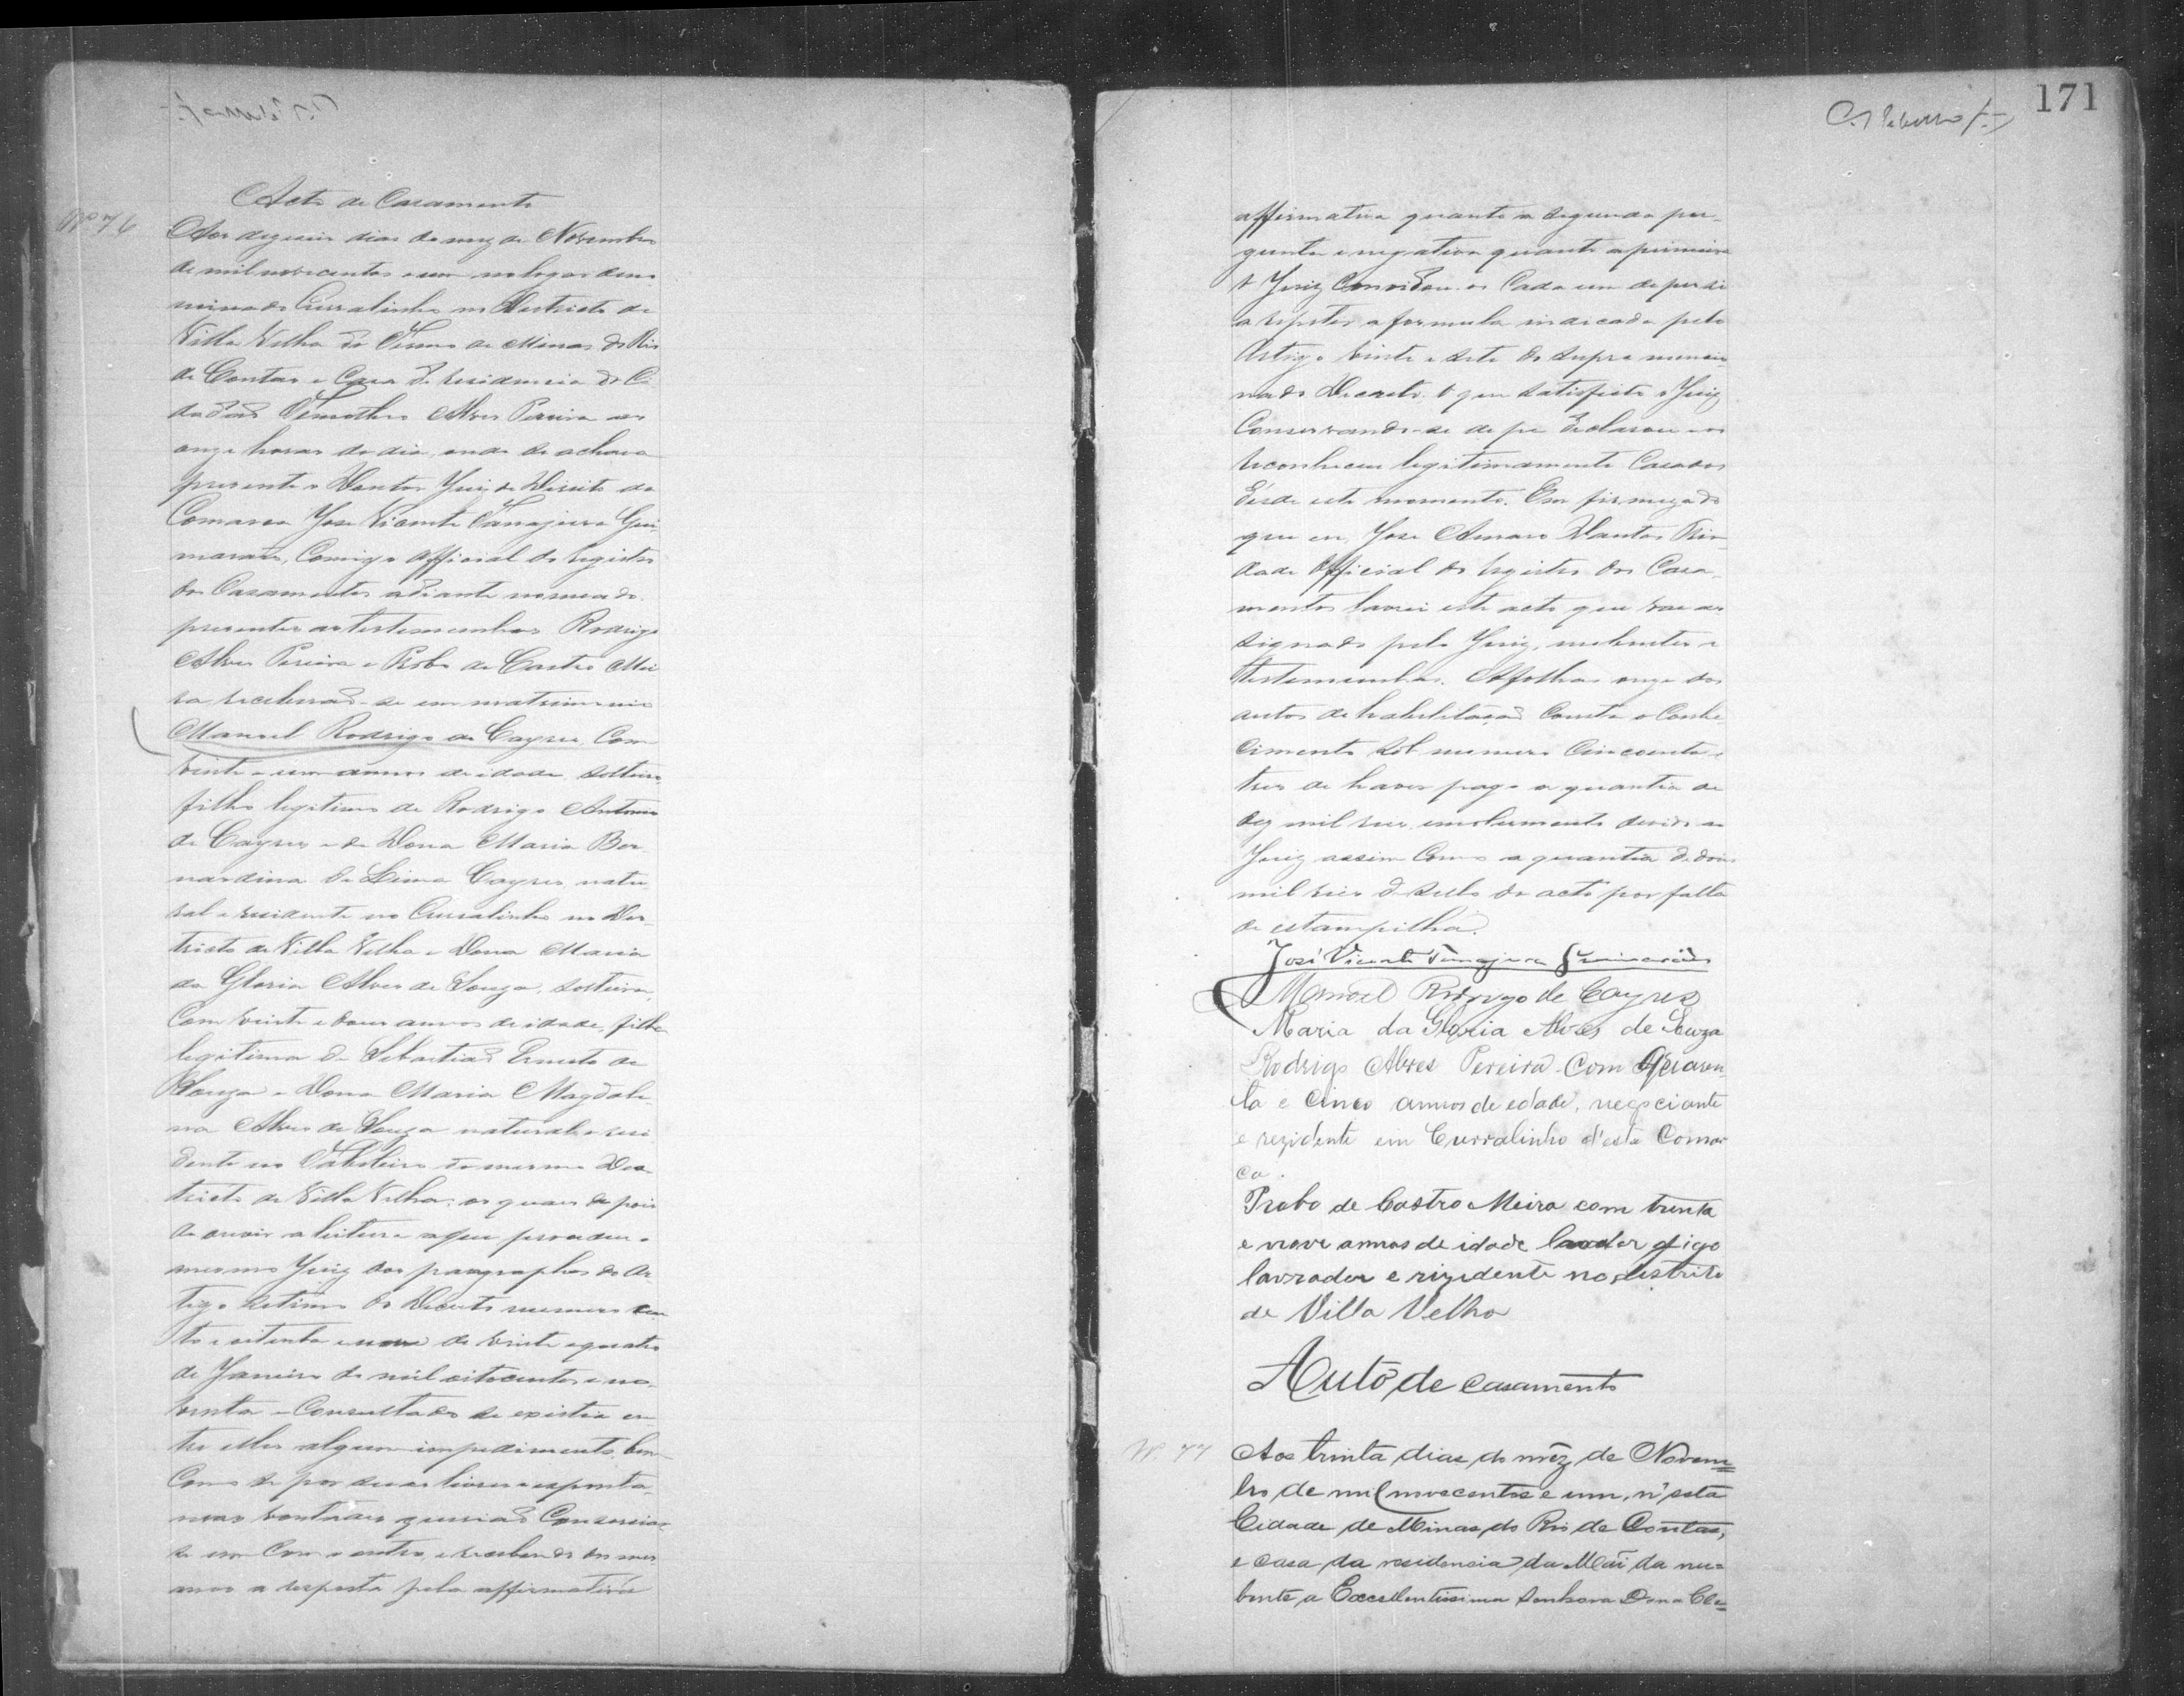 Acto de Casamento
Nº 76
Aos dezeseis dias do mez de Novembro
de mil novecentos e um no logar deno
minado Curralinho no Destricto de
Villa Velha do Termo de Minas do Rio
de Contas e Casa de residencia do Ci
dadaõ Timotheo Alves Pereira as
onze horas do dia, onde se achava
presente o Doutor Juiz de Direito da
Comarca Jose Vicente Tanajura Gui
maraẽs, Comigo official do registro
dos Casamentos adiante nomeado.
presentes as testemunhas Rodrigo
Alves Pereira e Probo de Castro Mei
ra, receberaõ-se em matrimonio
Manoel Rodrigo de Cayres, Com
vinte e um annos de idade solteiro
filho legitimo de Rodrigo Antonio
de Cayres e de Dona Maria Ber
nardina de Lima Cayres natu
ral e residente no Curralinho no Des
tricto de Villa Velha e Dona Maria
da Gloria Alves de Souza, solteira,
Com vinte e dous annos de idade, filha
legitima de Sebastiaõ Ernesto de
Souza e Dona Maria Magdale
na Alves de Souza natural e resi
dente no Taboleiro do mesmo Des
tricto de Villa Velha; os quaes depois
de ouvir a leitura a que procedeu o
mesmo Juiz dos paragraphos do Ar
tigo setimo do Decreto numero cen
to e oitenta e um de vinte e quatro
de Janeiro de mil oitocentos e no
venta e Consultados se existia en
tre elles algum impedimento, bem
Como se por suas livres e esponta
neas vontades queriaõ Consorciar
se um Com o outro, e recebendo dos mes
mos a resposta pela affirmativa
171
affirmativa quanto a segunda per
gunta e negativa quanto a primeira
o Juiz Convidou-os Cada um de per si
a repetir a formula indicada pelo
Artigo vinte e sete do supra mencio
nado Decreto. O que satisfeito o Juiz
Conservando-se de pé declarou e os
reconheceu legitimamente Casados
desde este momento. Em firmeza do
que eu, Jose Amaro Dantas
official do registro dos Casa
mentos lavrei este acto que vae as
signado pelo Juiz, nubentes e
testemunhas. A folhas onze dos
autos de habilitaçaõ Consta o Conhe
cimento sob numero Cincoenta e
tres de haver pago a quantia de
dez mil reis, emolumento devido ao
Juiz assim Como a quantia de dois
mil reis de sello do acto por falta
de estampilha.
José Vicente Tanajura Guimarães
Manoel Rodrigo de Cayres
Maria da Gloria Alves de Souza
Rodrigo Alves Pereira Com Quaren
ta e cinco annos de edade, negociante
e rezidente em Curralinho d'esta Comar
ca.
Probo de Castro Meira com trenta
e nove annos de idade digo
lavrador e rizedente no destrito
de Villa Velha
Auto de casamento
Nº 77
Aos trinta dias do mêz de Novem=
bro de mil novecentos e um, n'esta
Cidade de Minas do Rio de Contas,
e casa da residencia da Mãi da nu=
bente, a Excellentissima Senhora Dona Cle=